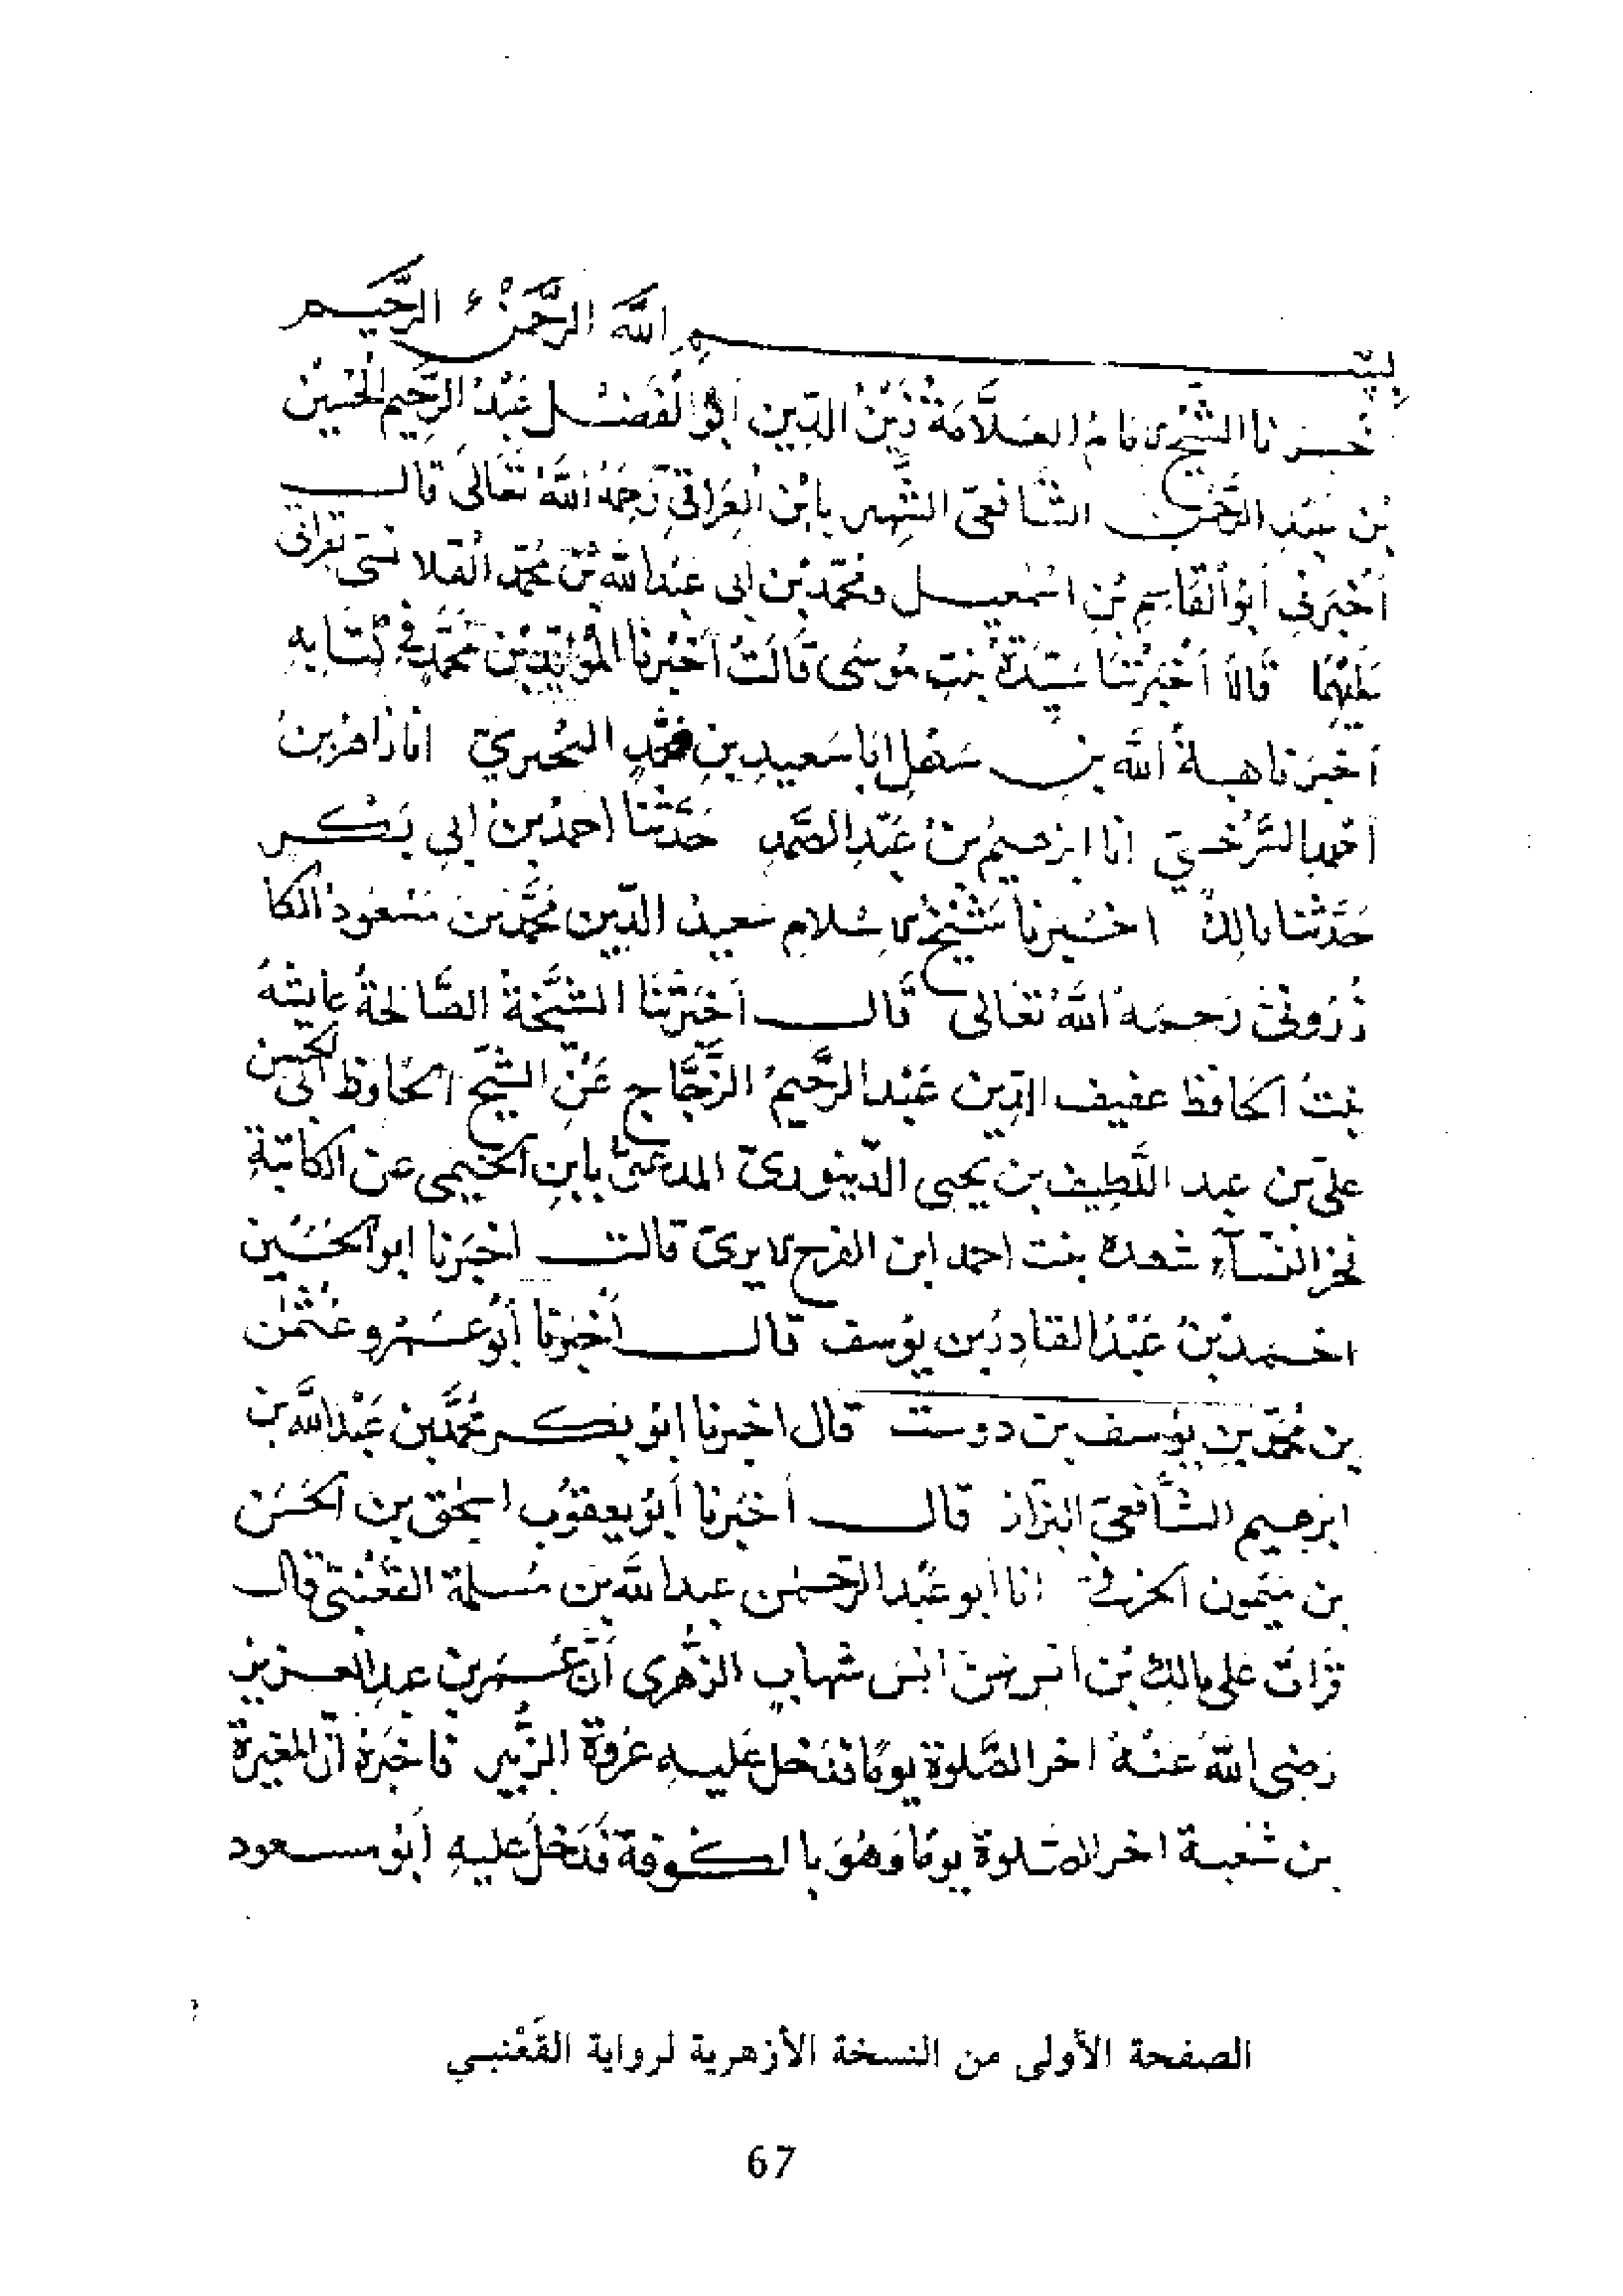 بسم الله الرَّحْمٰن الرَّحِيم
أخبرنا الشيخ الامام العلَّامة زَيْنُ الدّين أبو الْفَضل عَبْدُ الرَّحِيم الحُسَيْن
بْن عَبْد الرَّحْمن الشافعى الشَّهير بابْن الْعِرَاقِي رَحِمَهُ اللهُ تَعَالَى قال
أَخْبَرَنى أبوالْقَاسِم بْن اسْمعيل ومحمّد بْن أبى عَبْد الله بْن مُحمّد القلانسى بقراءتى
عَلَيْهِمَا قَالاَ أخْبَرَتْنَا سَيِّدَةُ بنت مُوسَى قَالَتْ أَخْبَرَنا المُؤَيَّد بْن مُحَمَّد فى كِتَابِهِ
أَخْبَرَنا هبةُ الله بن سَهْل انا سَعيد بن مُحَمَّدٍ البُحيرى انا زَاهِر بنُ
أحمد السَّرْخسى انا ابرهيم بْنُ عَبْد الصَّمَدِ حَدَّثَنا احمدُ بن ابى بَكْر
حَدَّثنا مالِك اخْبَرنا شَيْخ الاسْلام سَعيد الدّين مُحَمَّد بن مَسْعُود الكا
زُرونى رَحمهُ اللهُ تَعَالى قَال أخبَرَتْنَا الشَّيْخَةُ الصَّالحةُ عايشةُ
بنتُ الحَافظ عفيف الدّين عَبْد الرَّحيمُ الزَّجَّاج عَنِ الشَّيخ الحَافِظ أبى الحسن
على بن عبد اللَّطِيف بن يحيى الدّينورى المدعىّ بابن الخيمى عن الكاتبة
فخر النسآء شهدة بنت احمد ابن الفرج الابرىّ قالت اخبَرَنا ابوالحُسَين
احمدُ بْنُ عَبْدُ القادر بن يوُسف قال أَخبرنا أبُوعَمْرو عُثْمٰن
بن مُحمّد بن يوُسف بن دوست قال اخبرنا ابُو بكر مُحمَّد بن عَبْد الله بن
ابرهيم الشَّافعىّ البزّاز قال أخبَرنا أبُو يعقوُب اسحٰق بن الحَسَن
بن مَيمون الحَربى انا ابو عَبْد الرّحمٰن عبد الله بن مَسلمة القَعْنبى قال
قرات على مالك بْن انس عن ابن شهاب الزُّهرى أنّ عُمَر بن عبد العزيز
رَضى اللهُ عَنْهُ اخر الصَّلوة يومًا فدَخل عَليهِ عُرْوة الزُّبير فاخبَرَهُ أنّ المغيرة
بن شُعبة اخر الصَّلوة يومًا وَهُوَ باالكوفة فَدَخلَ عَليهِ أبُو مسعود
الصفحة الأولى من النسخة الأزهرية لرواية القَعْنبي
67